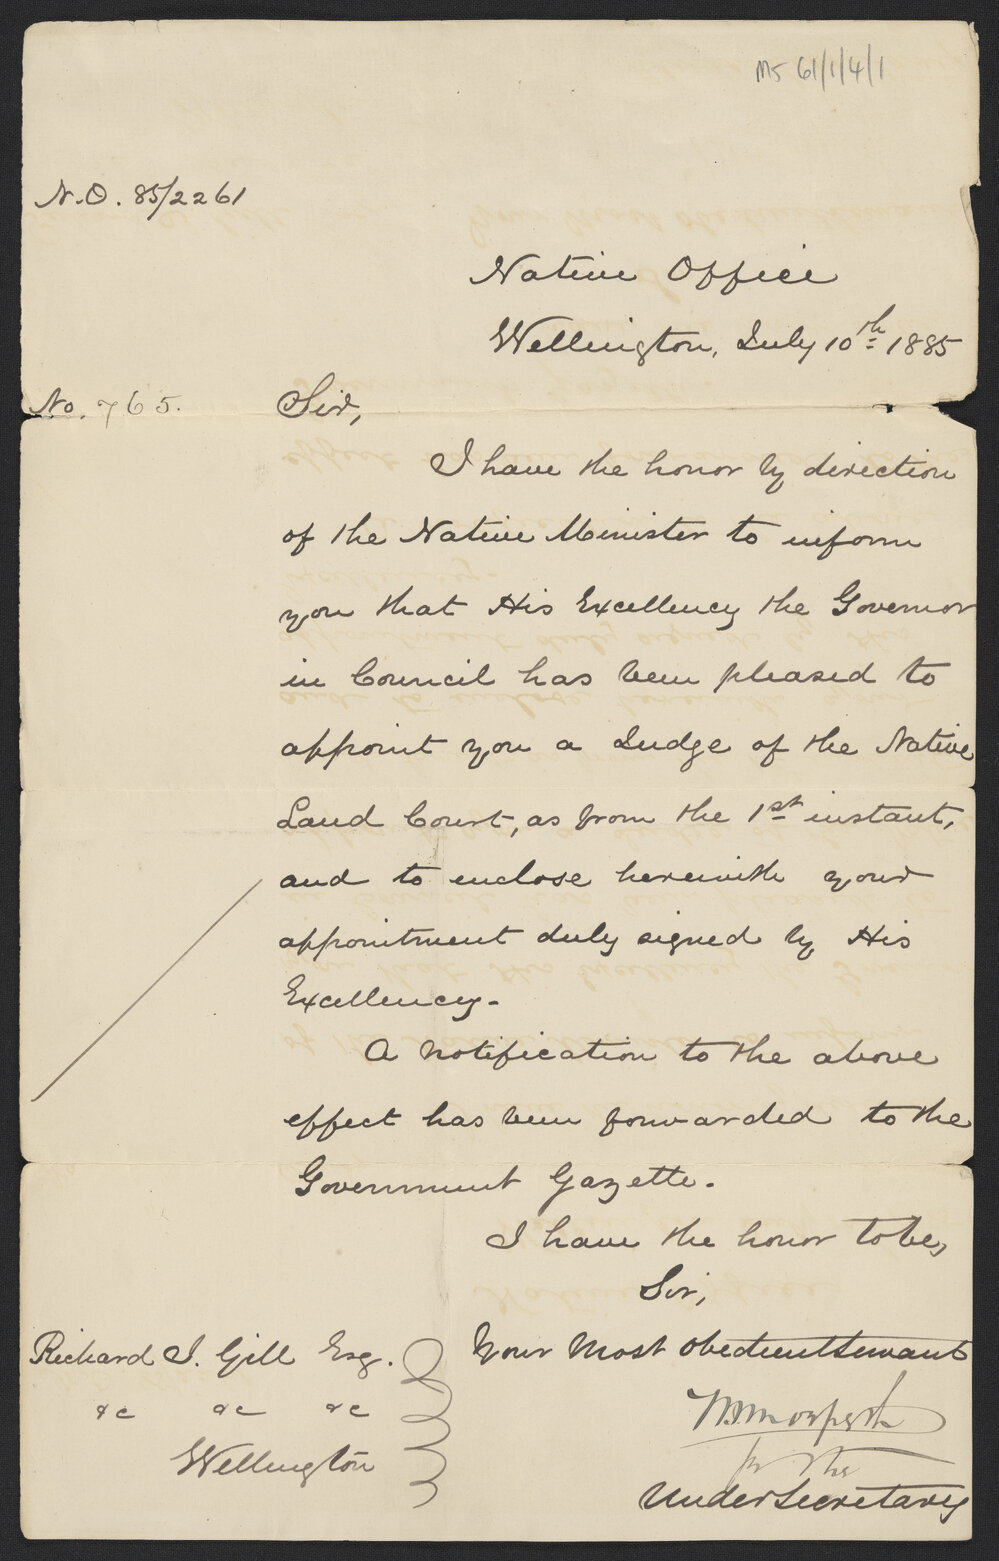 MS 61/1/4/1
N.O. 85/2261
Native Office
Wellington, July 10th 1885
No. 765.
Sir,
I have the honor by direction
of the Native Minister to inform
you that His Excellency the Governor
in Council has been pleased to
appoint you a Judge of the Native
Land Court, as from the 1st instant,
and to enclose herewith your
appointment duly signed by His
Excellency-
A notification to the above
effect has been forwarded to the
Government Gazette.
I have the honor to be,
Sir,
Your most obedient servant
for the
Under Secretary
Richard J. Gill Esq.
&c &c &c
Wellington